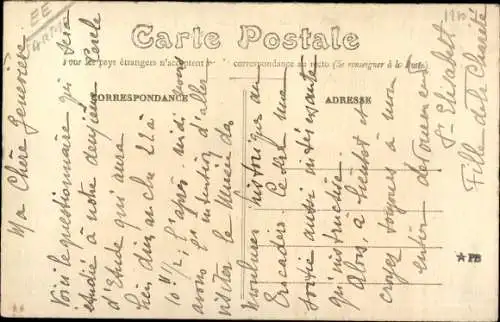 Carte Postale
Tous les pays étrangers n'acceptent pas correspondance au recto (Se renseigner à la Poste).
CORRESPONDANCE
ADRESSE
Ma Chère Geneviève
Voici le questionnaire qui sera
étudié à notre deuxième Cercle
d'Etude qui aura
lieu dimanche 22 à
10 H 1/2; l'après midi nous
avons l'intention d'aller
visiter le Musée des
Moulages historiques au
Trocadéro. Ce sera une
sortie aussi intéressante
qu'instructive.
Alors, à bientôt et
croyez toujours à mon
entier dévouement
Sr Elisabeth
Fille de la Charité
EE
PB